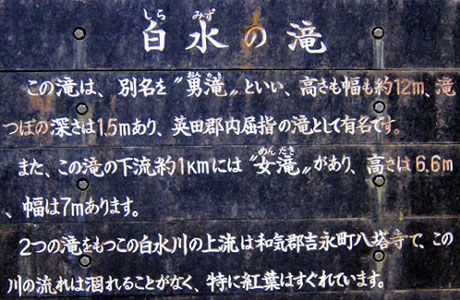 白水の滝
しらみず
この滝は、別名を〝男滝〟といい、高さも幅も約12m、滝
つぼの深さは1.5mあり、英田郡内屈指の滝として有名です。
また、この滝の下流約1kmには〝女滝〟があり、高さは6.6m
めんだき
、幅は7mあります。
2つの滝をもつこの白水川の上流は和気郡吉永町八塔寺で、この
川の流れは涸れることがなく、特に紅葉はすぐれています。